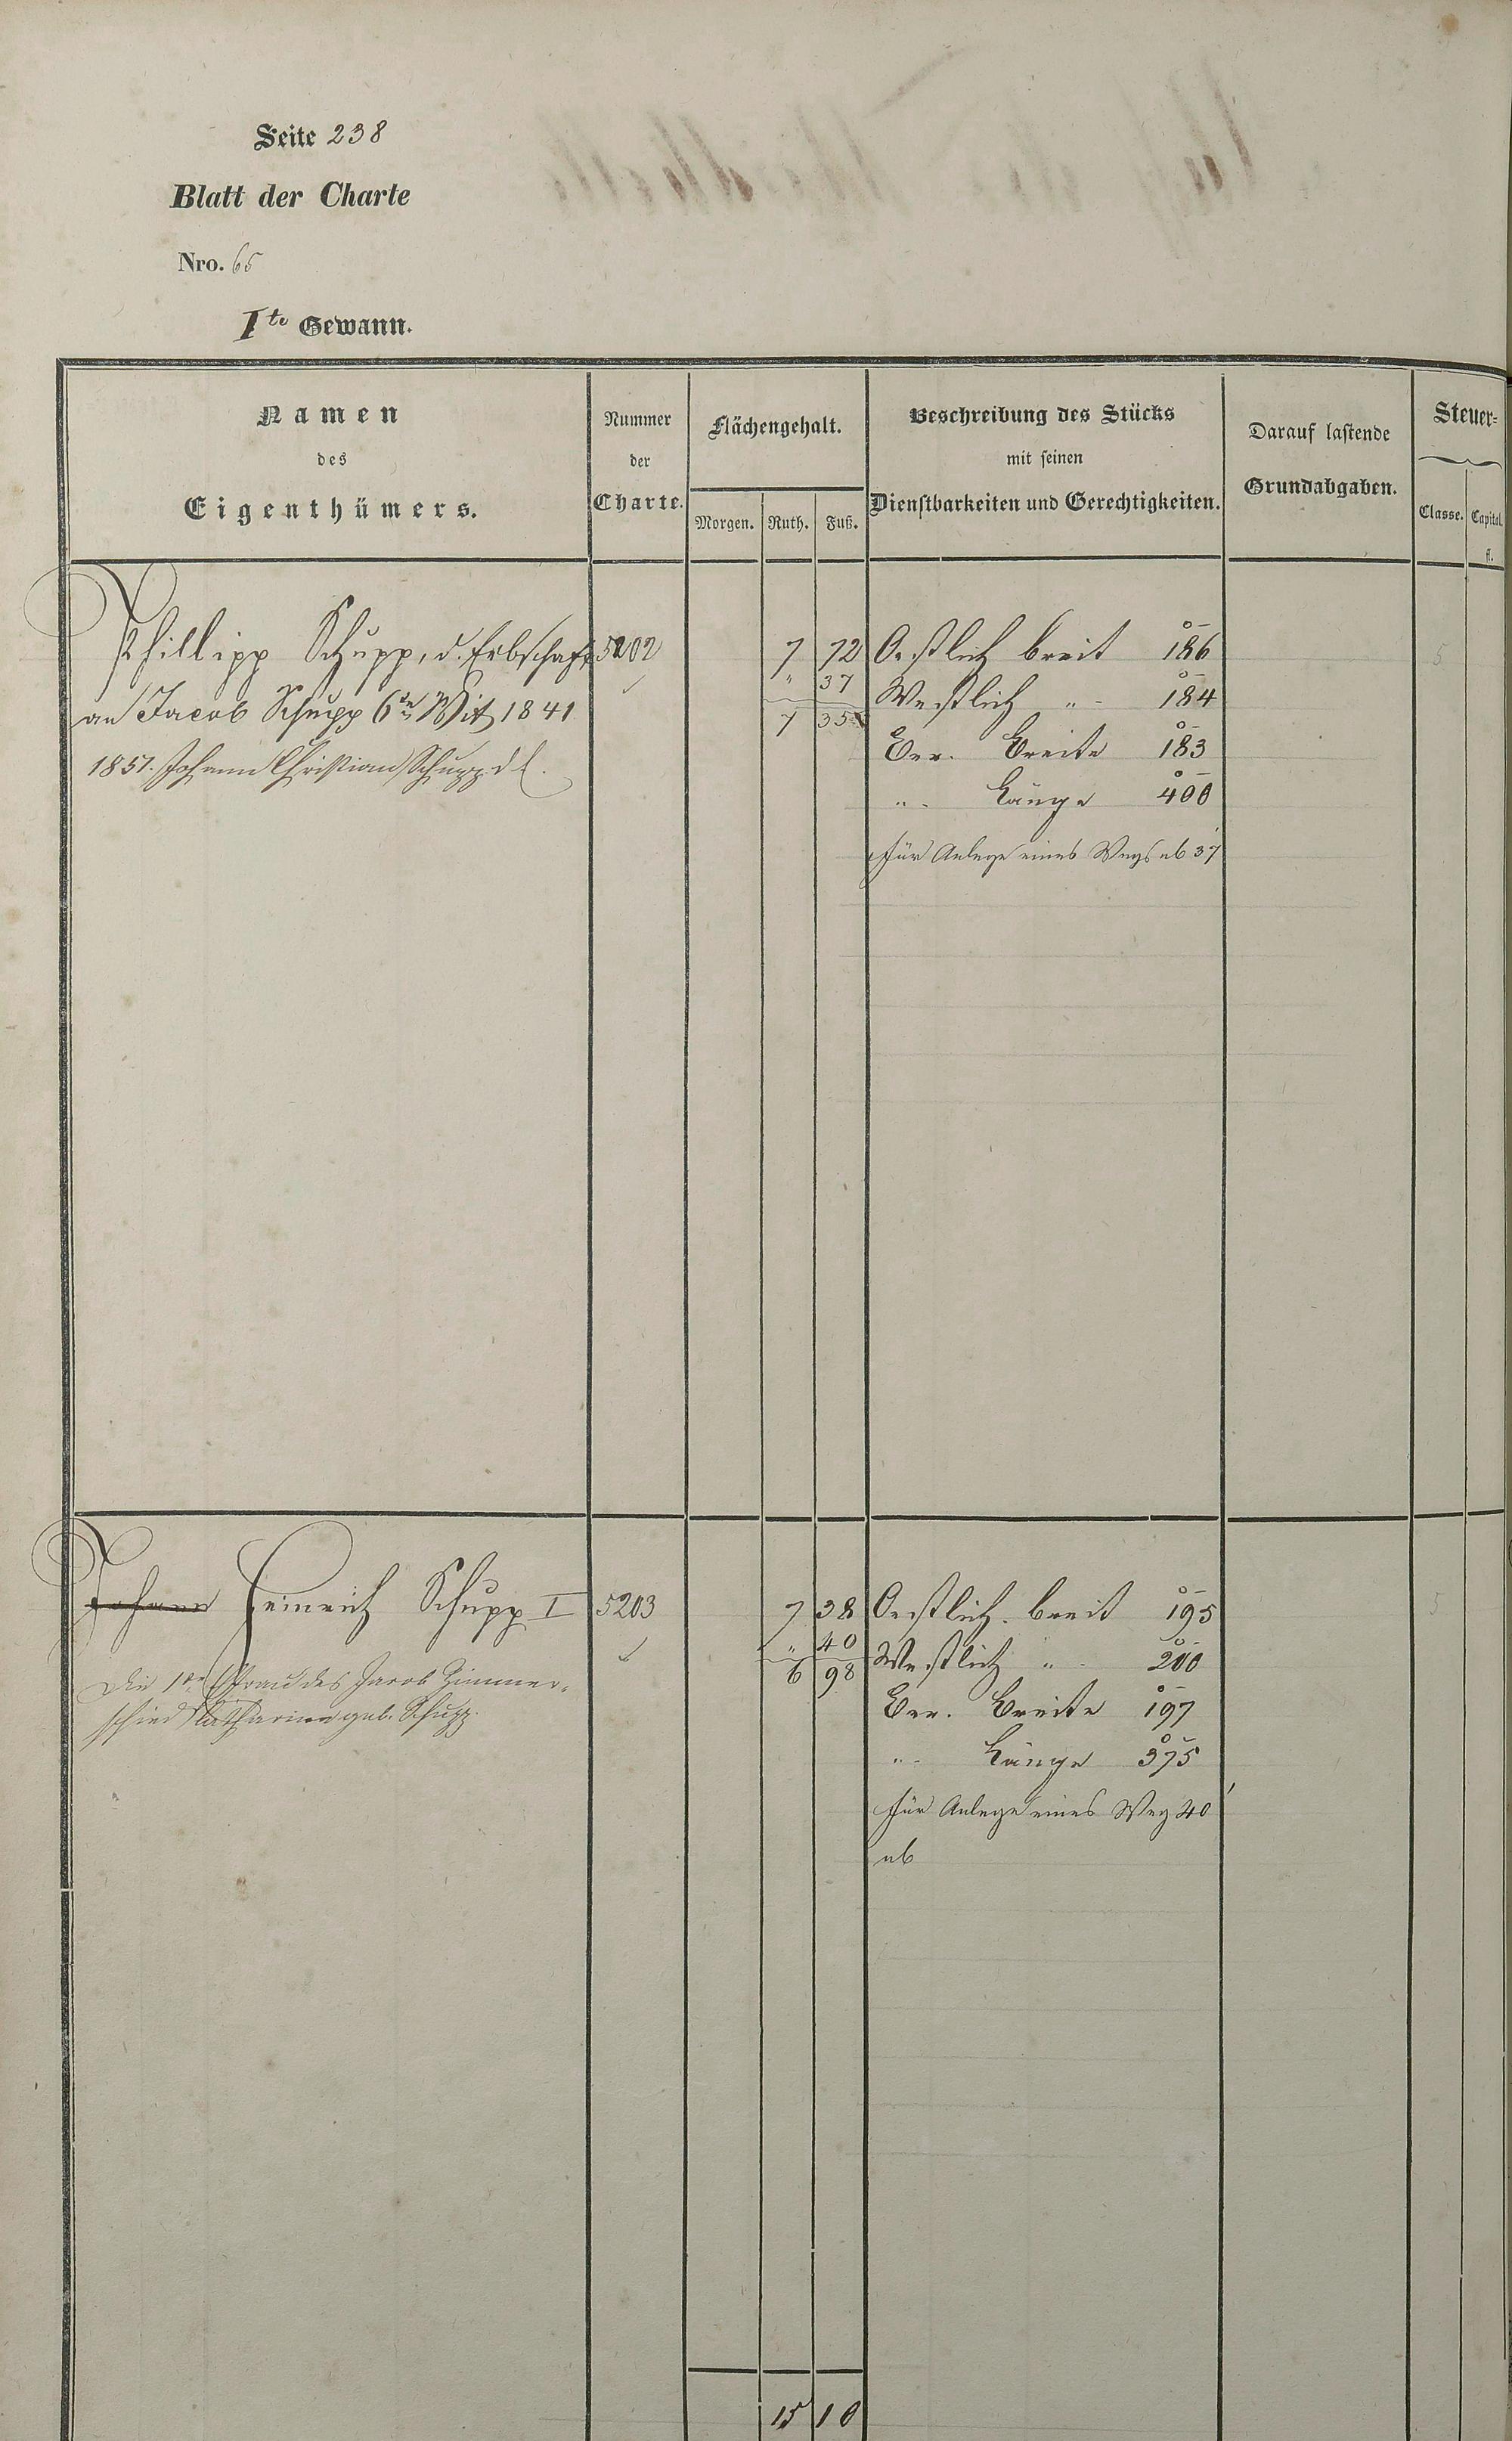 Seite 238
Blatt der Charte
Nro. 65
I te Gewann.
Namen
des
Eigenthümers.
Nummer
der
Charte.
Flächengehalt.
Morgen. Ruth. Fuß.
Beschreibung des Stücks
mit seinen
Dienstbarkeiten und Gerechtigkeiten.
Darauf lastende
Grundabgaben.
Steuer=
Classe. Capital.
fl.
Phillipp Schupp, d. Erbschaft 5202 7 72 Oestlich breit 186 5
an Jacob Schupp 6 Wit 1841 " 37 Westlich " 184
7 35
1851. Johann Christian Schupp d. Ver. Breite 183
" Länge 400
für Anlage eines Wegs ab 37'
Johann Heinrich Schupp I 5203 7 38 Oestlich breit 195 5
" 40 Westlich " 200
Die 1te Efrau des Jacob Zimmer= 6 98
schied Katharina geb. Schupp. Ver. Breite 197
" Länge 375
für Anlage eines Weg 40'
ab
15 10